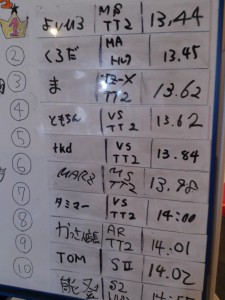 1 よい113 MA TT2 13.44
② くろだ MA 13.45
③ ま TT2 13.62
④ ともちん VS TT2 13.62
⑤ tkd VS TT2 13.84
⑥ MARS MS TT2 13.98
⑦ タミヤー VS TT2 14:00
⑧ AR TT2 14.01
⑨ TOM SⅡ 14.02
⑩ S2